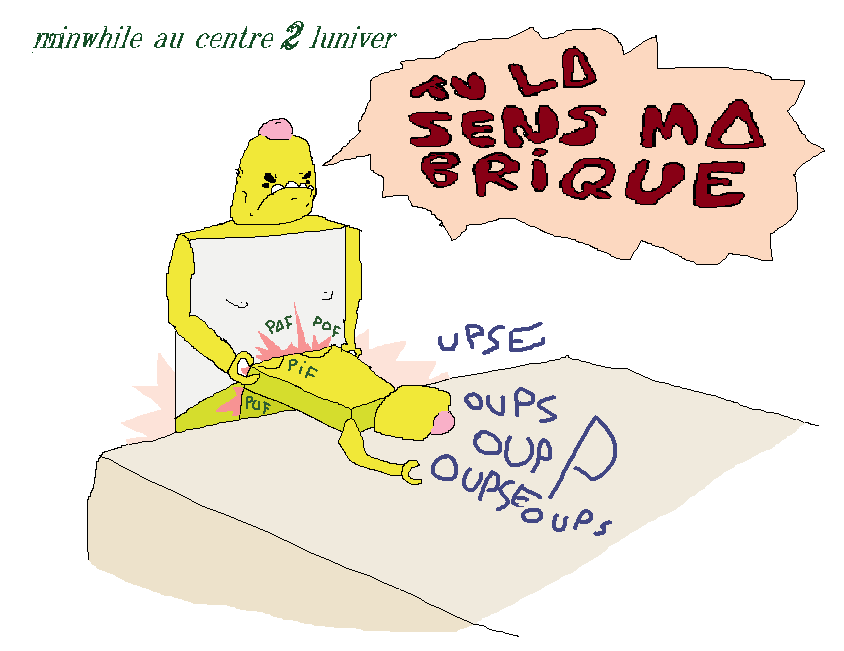 minwhile au centre 2 luniver
TU LA
SENS MA
BRIQUE
PAF POF
PiF
PUF
UPSE
OUPS
OUP
OUPSE P
OUPS